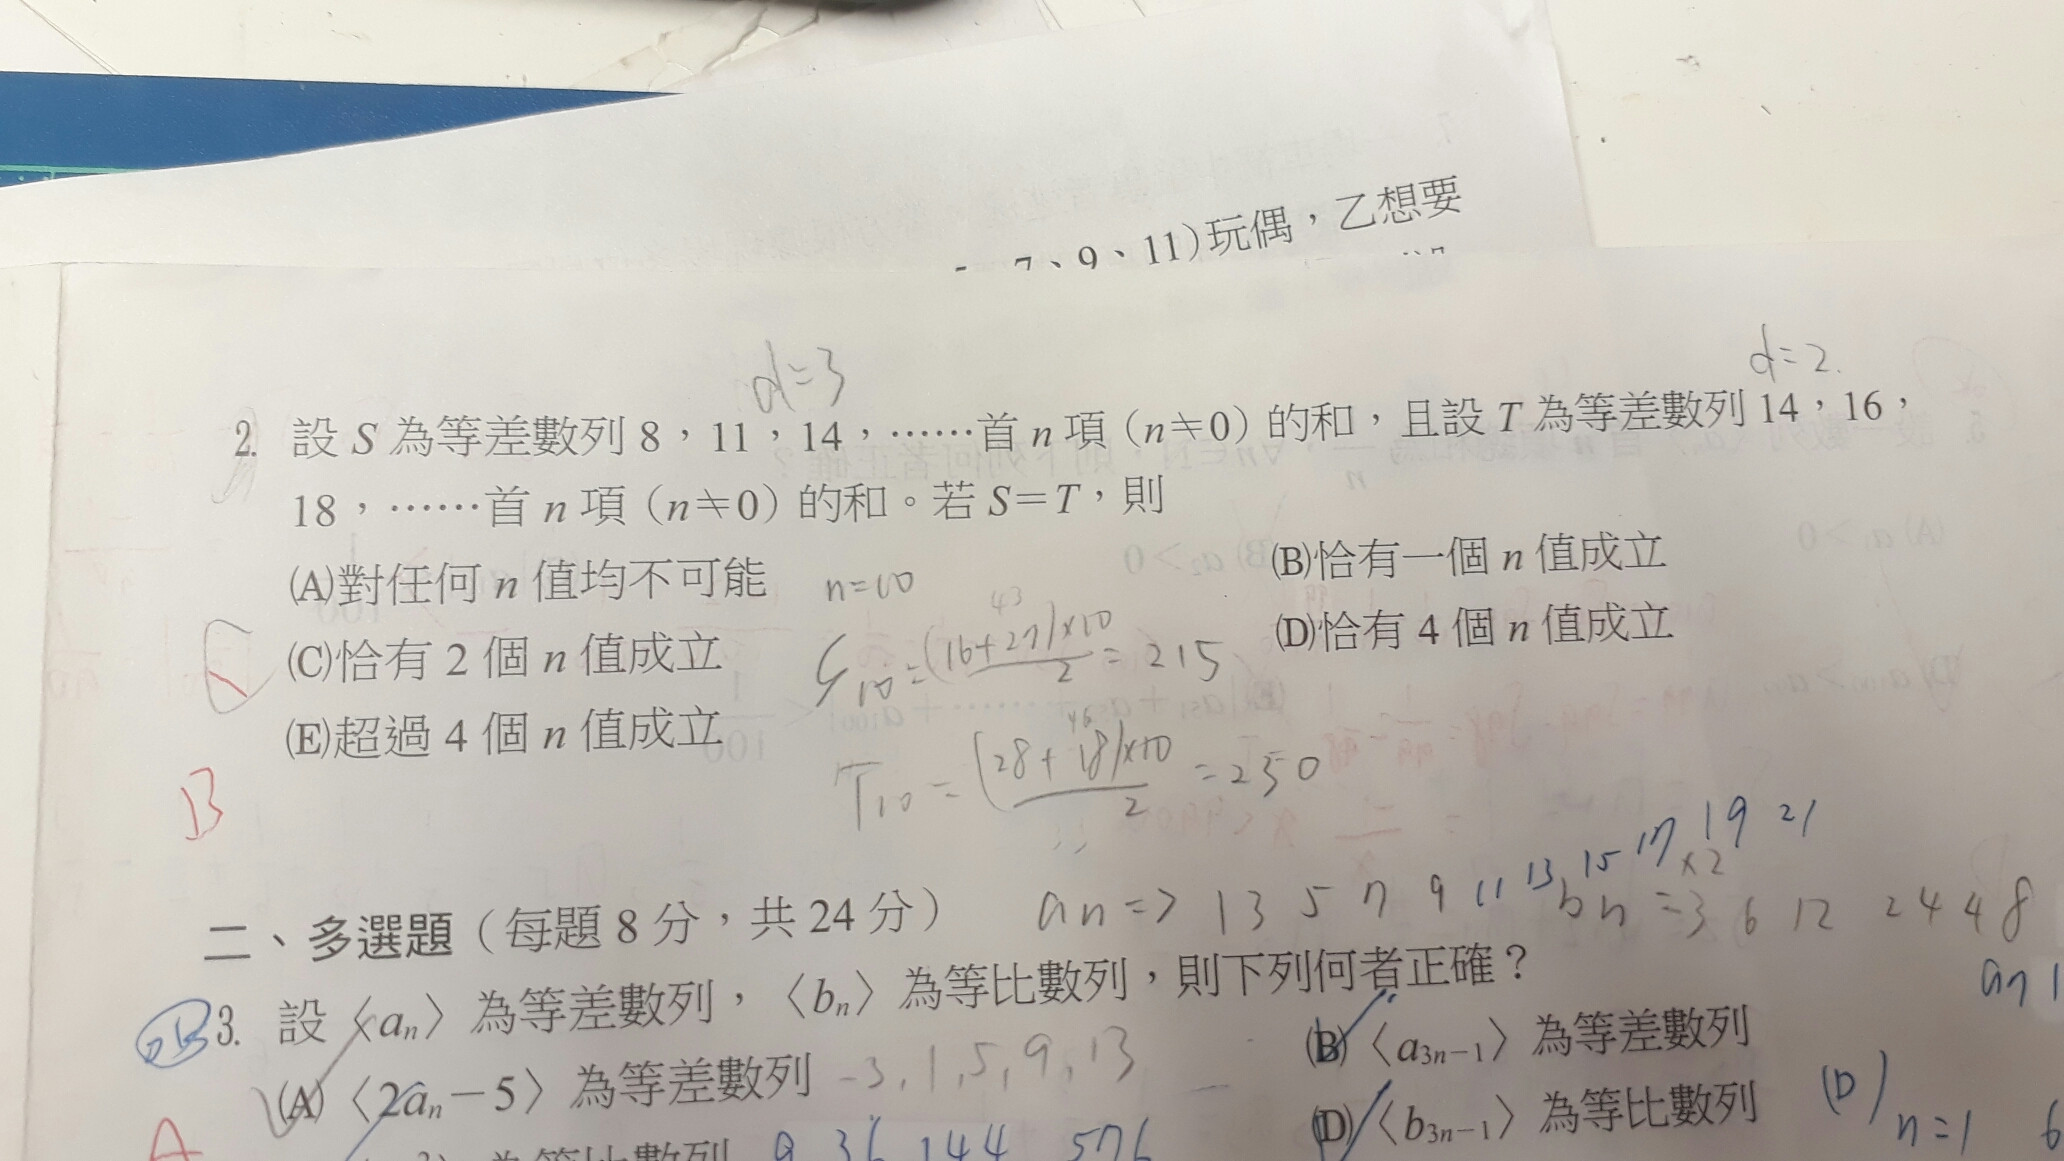 7、9、11)玩偶，乙想要
d=3
d=2.
2. 設 S 為等差數列 8，11，14，……首 n 項（n≠0）的和，且設 T 為等差數列 14，16，
18，……首 n 項（n≠0）的和。若 S=T，則
(A)對任何 n 值均不可能
n=10
(B)恰有一個 n 值成立
(C)恰有 2 個 n 值成立
S₁₀=(16+27)×10/2=215
43
(D)恰有 4 個 n 值成立
(E)超過 4 個 n 值成立
T₁₀=(28+18)×10/2=230
46
B
二、多選題（每題 8 分，共 24 分）
an=> 1 3 5 7 9 11 13 15 17 19 21
×2
bn=3 6 12 24 48
3. 設〈aₙ〉為等差數列，〈bₙ〉為等比數列，則下列何者正確？
(A)〈2aₙ−5〉為等差數列
-3,1,5,9,13
(B)〈a₃ₙ₋₁〉為等差數列
(D)〈b₃ₙ₋₁〉為等比數列
(D) n=1 6
為等比數列
9 36 144 576
A